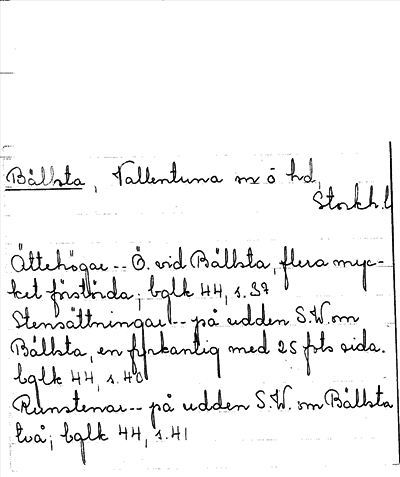 Bållsta, Vallentuna sn o hd,
Stockh.l
Ättehögar -- Ö. vid Bållsta, flera myc-
ket förstörda; bglk 44, s.37
Stensättningar -- på udden S.W. om
Bållsta, en fyrkantig med 25 fots sida.
bglk 44, s.40
Runstenar -- på udden S.W. om Bållsta
två; bglk 44, s.41